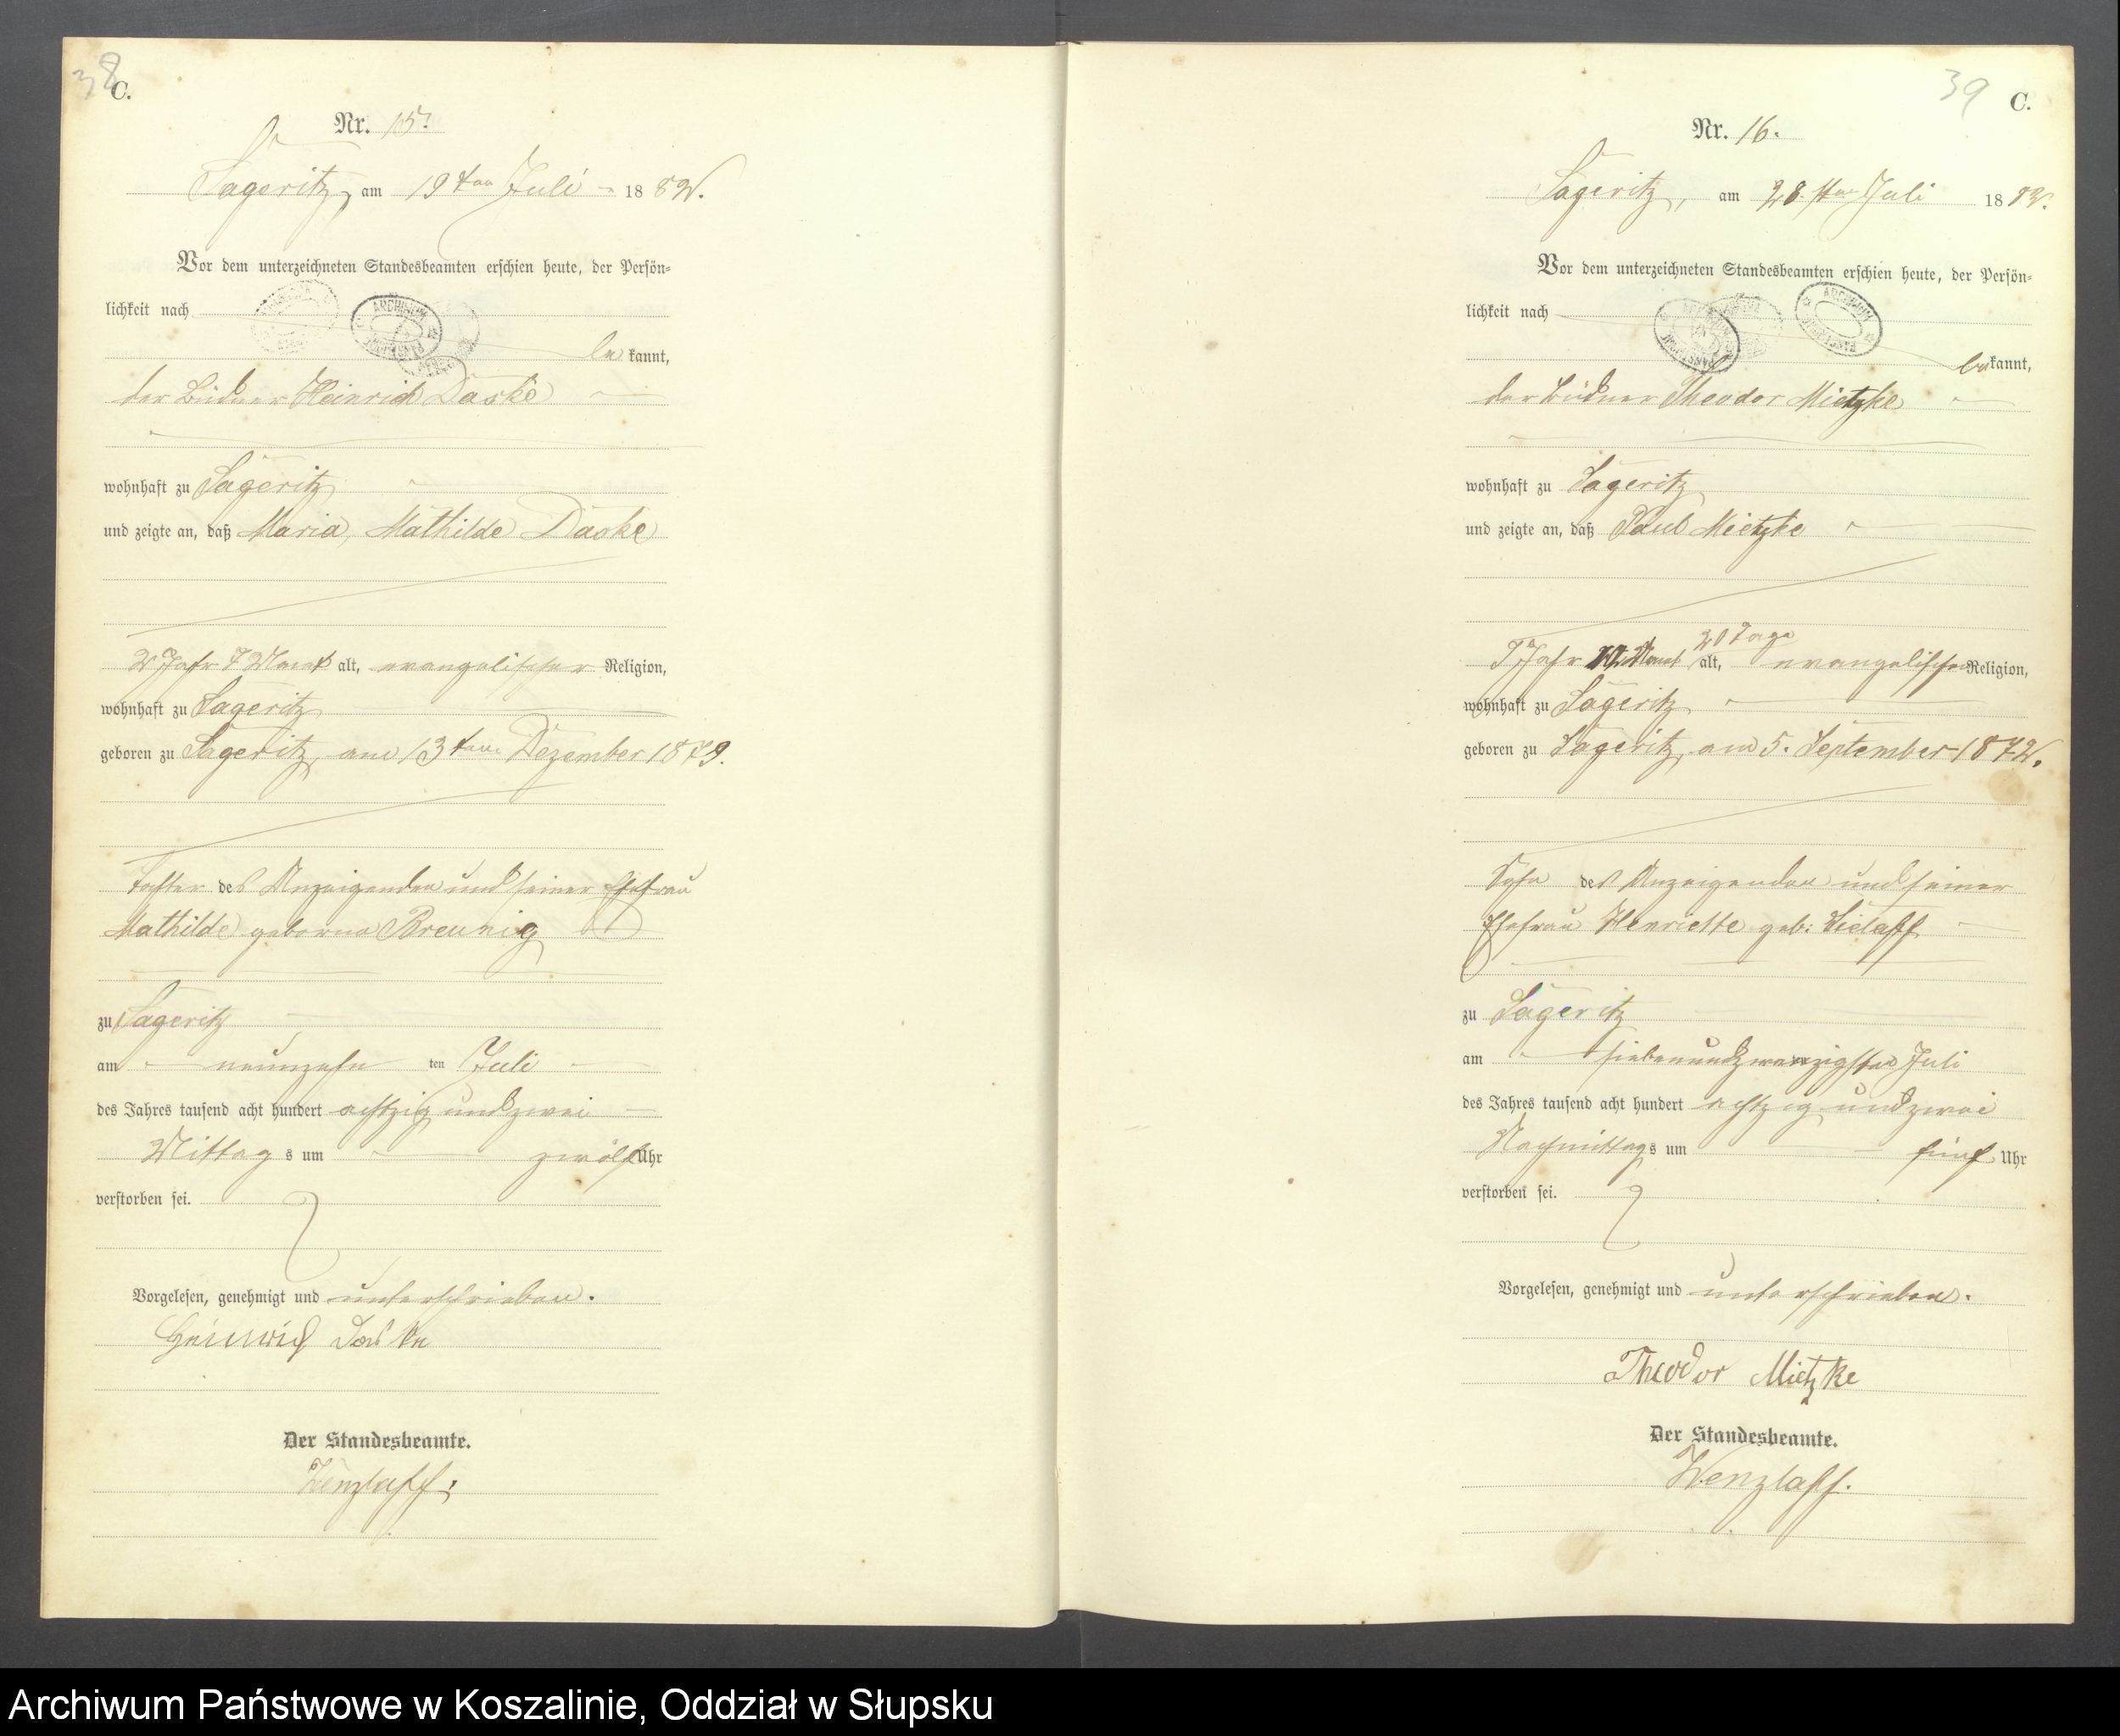 38
C.
Nr. 15.
Sageritz, am 19ten Juli 1882.
Vor dem unterzeichneten Standesbeamten erschien heute, der Persön-
lichkeit nach
be kannt,
der Büdner Heinrich Daske
wohnhaft zu Sageritz
und zeigte an, daß Maria, Mathilde Daske
2 Jahr 7 Monat alt, evangelischer Religion,
wohnhaft zu Sageritz
geboren zu Sageritz, am 13ten Dezember 1879.
Tochter des Anzeigenden und seiner Ehefrau
Mathilde geborne Breunig
zu Sageritz
am neunzehn ten Juli
des Jahres tausend acht hundert achtzig und zwei
Mittag s um zwölf Uhr
verstorben sei.
Vorgelesen, genehmigt und unterschrieben.
Heinrich Daske
Der Standesbeamte.
Wenzlaff.
39
C.
Nr. 16.
Sageritz, am 28.sten Juli 1882.
Vor dem unterzeichneten Standesbeamten erschien heute, der Persön-
lichkeit nach
be kannt,
der Büdner Theodor Mietzke
wohnhaft zu Sageritz
und zeigte an, daß Paul Mietzke
20 Tage
9 Jahr Monat alt, evangelischer Religion,
wohnhaft zu Sageritz
geboren zu Sageritz, am 5. September 1872.
Sohn des Anzeigenden und seiner
Ehefrau Henriette geb:
zu Sageritz
am siebenundzwanzigsten Juli
des Jahres tausend acht hundert achtzig und zwei
Nachmittag s um fünf Uhr
verstorben sei.
Vorgelesen, genehmigt und unterschrieben.
Theodor Mietzke
Der Standesbeamte.
Wenzlaff.
Archiwum Państwowe w Koszalinie, Oddział w Słupsku